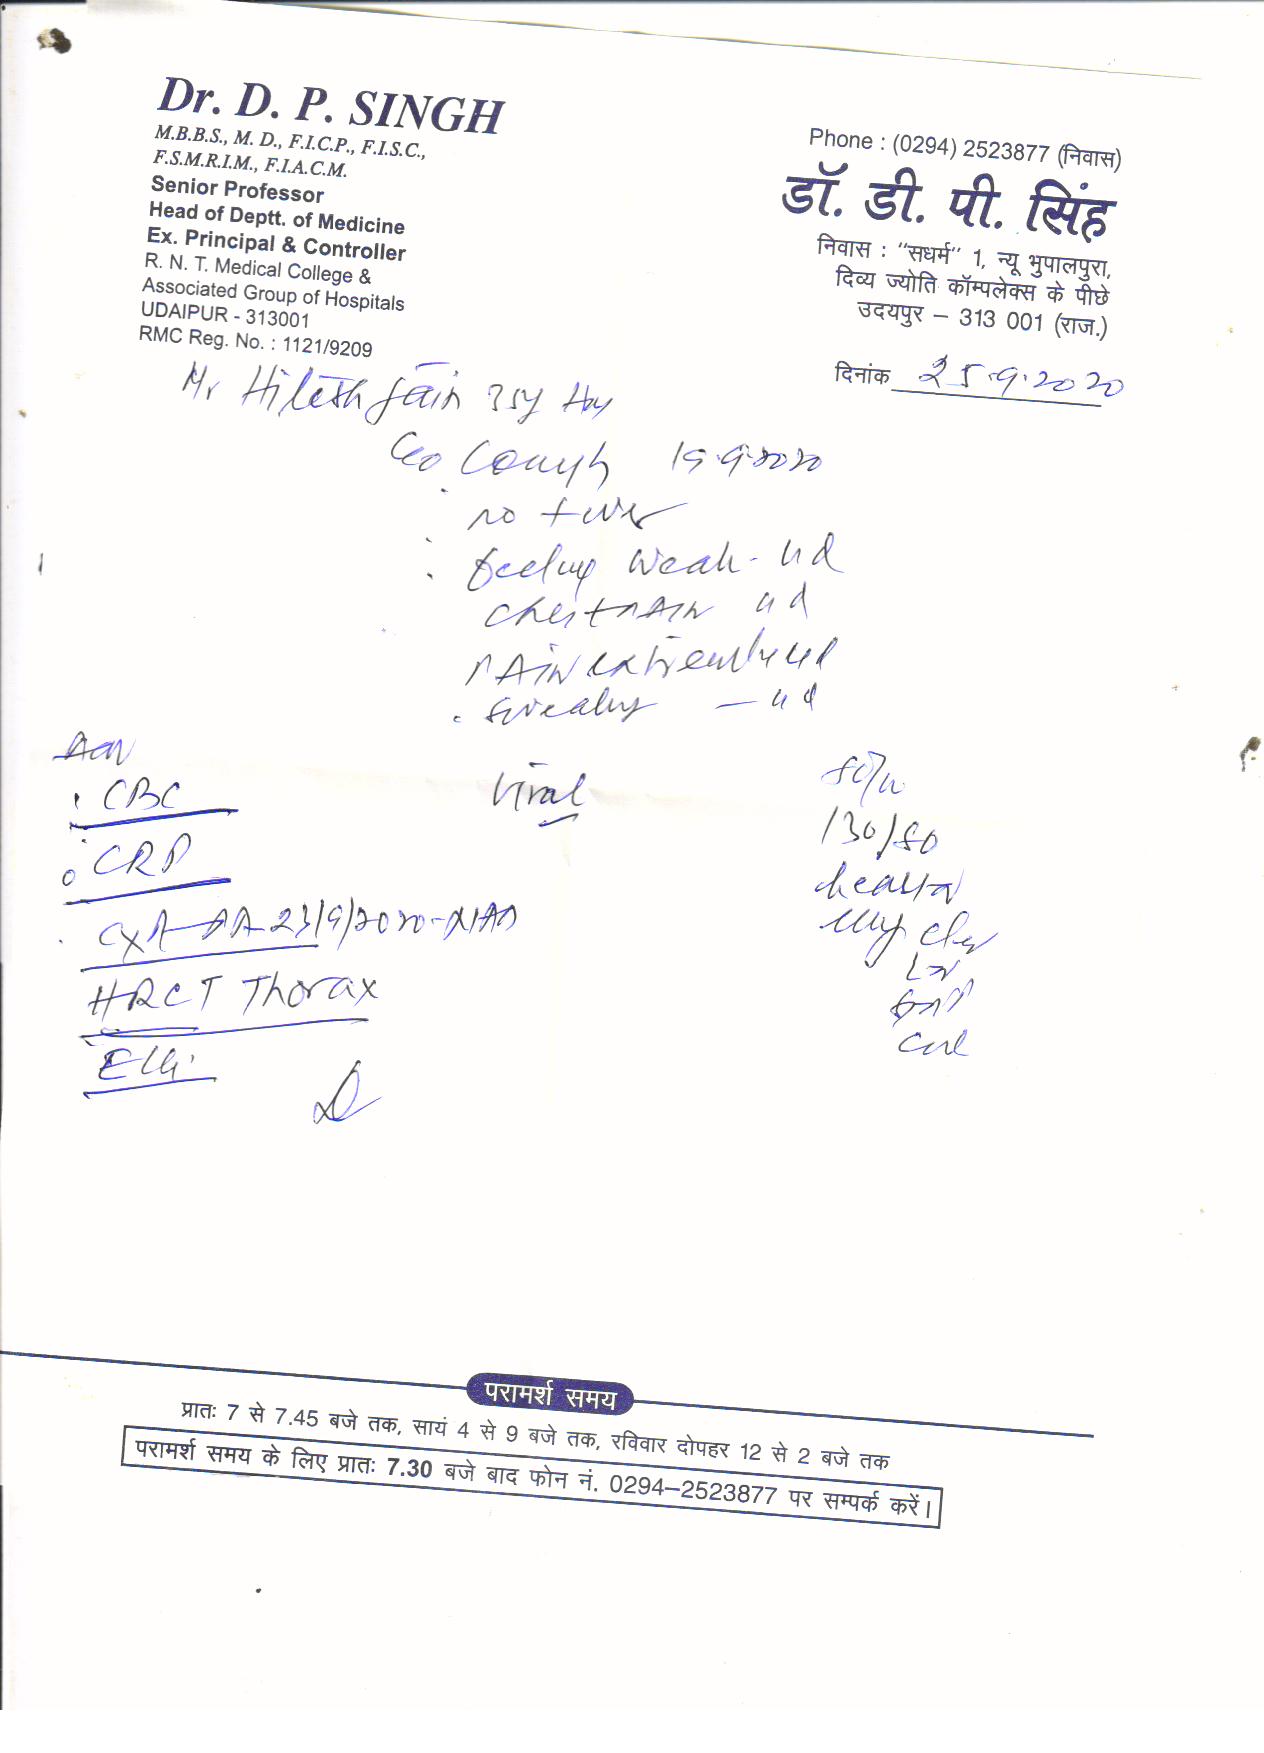 Dr. D. P. SINGH
M.B.B.S., M. D., F.I.C.P., F.I.S.C.,
F.S.M.R.I.M., F.I.A.C.M.
Senior Professor
Head of Deptt. of Medicine
Ex. Principal & Controller
R. N. T. Medical College &
Associated Group of Hospitals
UDAIPUR - 313001
RMC Reg. No. : 1121/9209
Phone : (0294) 2523877 (निवास)
डॉ. डी. पी. सिंह
निवास : "सधर्म" 1, न्यू भुपालपुरा,
दिव्य ज्योति कॉम्पलेक्स के पीछे
उदयपुर – 313 001 (राज.)
दिनांक 25.9.2020
Mr Hitesh Jain 35y
C/o Cough 15.9.2020
no fever
feeling weak
chest pain
pain
sweating
CBC
CRP
23/9/2020
HRCT Thorax
Viral
130/80
परामर्श समय
प्रातः 7 से 7.45 बजे तक, सायं 4 से 9 बजे तक, रविवार दोपहर 12 से 2 बजे तक
परामर्श समय के लिए प्रातः 7.30 बजे बाद फोन नं. 0294–2523877 पर सम्पर्क करें।